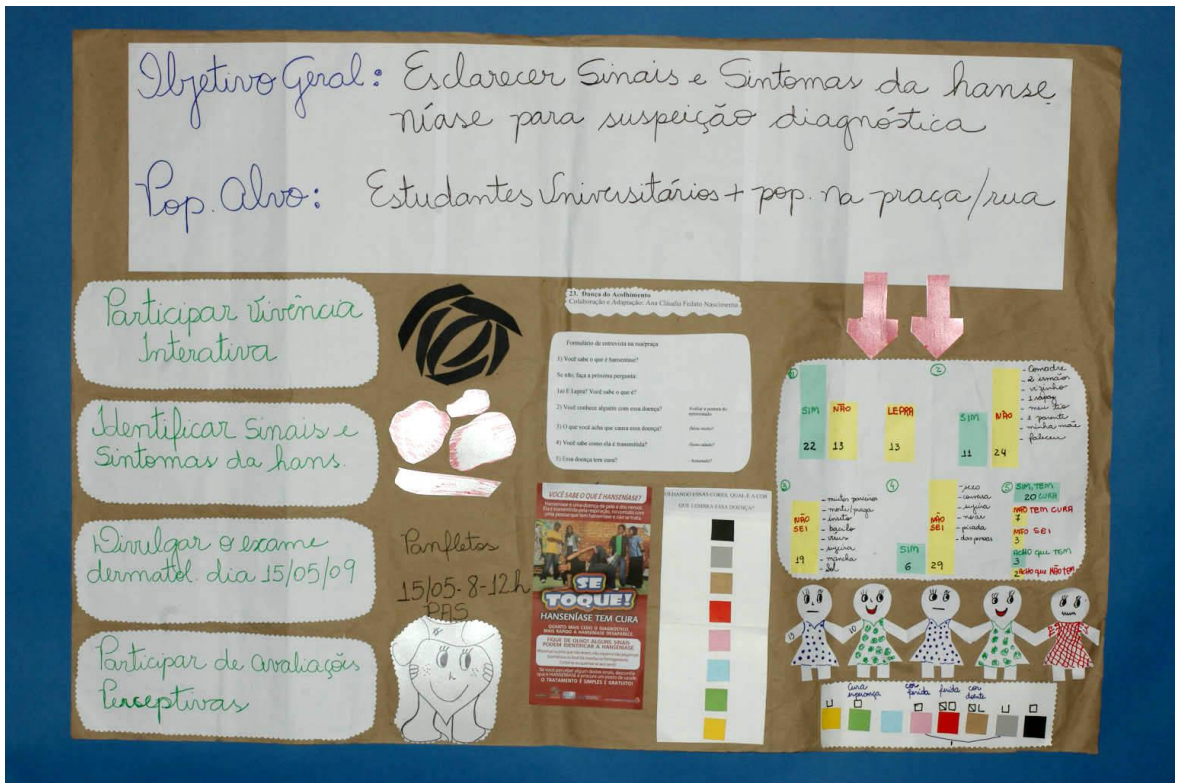 Objetivo Geral: Esclarecer Sinais e Sintomas da hanse
níase para suspeição diagnóstica
Pop. Alvo: Estudantes Universitários + pop. na praça/rua
Participar Vivência
Interativa
Identificar Sinais e
Sintomas da hans.
Divulgar o exame
dermatol. dia 15/05/09
Participar de avaliações
Perceptivas
Panfletos
15/05-8-12h
PAS
23. Dança do Acolhimento
Colaboração e Adaptação: Ana Cláudia Fedato Nascimento
Formulário de entrevista na rua/praça
1) Você sabe o que é hanseníase?
Se não, faça a próxima pergunta:
1a) E Lepra? Você sabe o que é?
2) Você conhece alguém com essa doença?
3) O que você acha que causa essa doença?
4) Você sabe como ela é transmitida?
5) Essa doença tem cura?
VOCÊ SABE O QUE É HANSENÍASE?
Hanseníase é uma doença de pele e dos nervos.
Ela é transmitida pela respiração, no contato com
uma pessoa que tem hanseníase e não se trata.
SE
TOQUE!
HANSENÍASE TEM CURA
QUANTO MAIS CEDO O DIAGNÓSTICO,
MAIS RÁPIDO A HANSENÍASE DESAPARECE.
FIQUE DE OLHO! ALGUNS SINAIS
PODEM IDENTIFICAR A HANSENÍASE
O TRATAMENTO É SIMPLES E GRATUITO!
OLHANDO ESSAS CORES, QUAL É A COR
QUE LEMBRA ESSA DOENÇA?
1
SIM
22
NÃO
13
LEPRA
13
2
SIM
11
NÃO
24
- Comadre
- 2 irmãos
- vizinho
- 1 rapaz
- meu tio
- 1 parente
- minha mãe
faleceu
3
NÃO
SEI
19
- muitos parceiros
- inseto
- bacilo
- vírus
- sujeira
- mancha
- Sol
4
SIM
6
NÃO
SEI
29
- sujeira
- picada
5
SIM, TEM
20 CURA
NÃO TEM CURA
7
NÃO SEI
3
ACHO que TEM
3
2 ACHO que NÃO TEM
Cura
esperança
cor
ferida
ferida
cor
doente